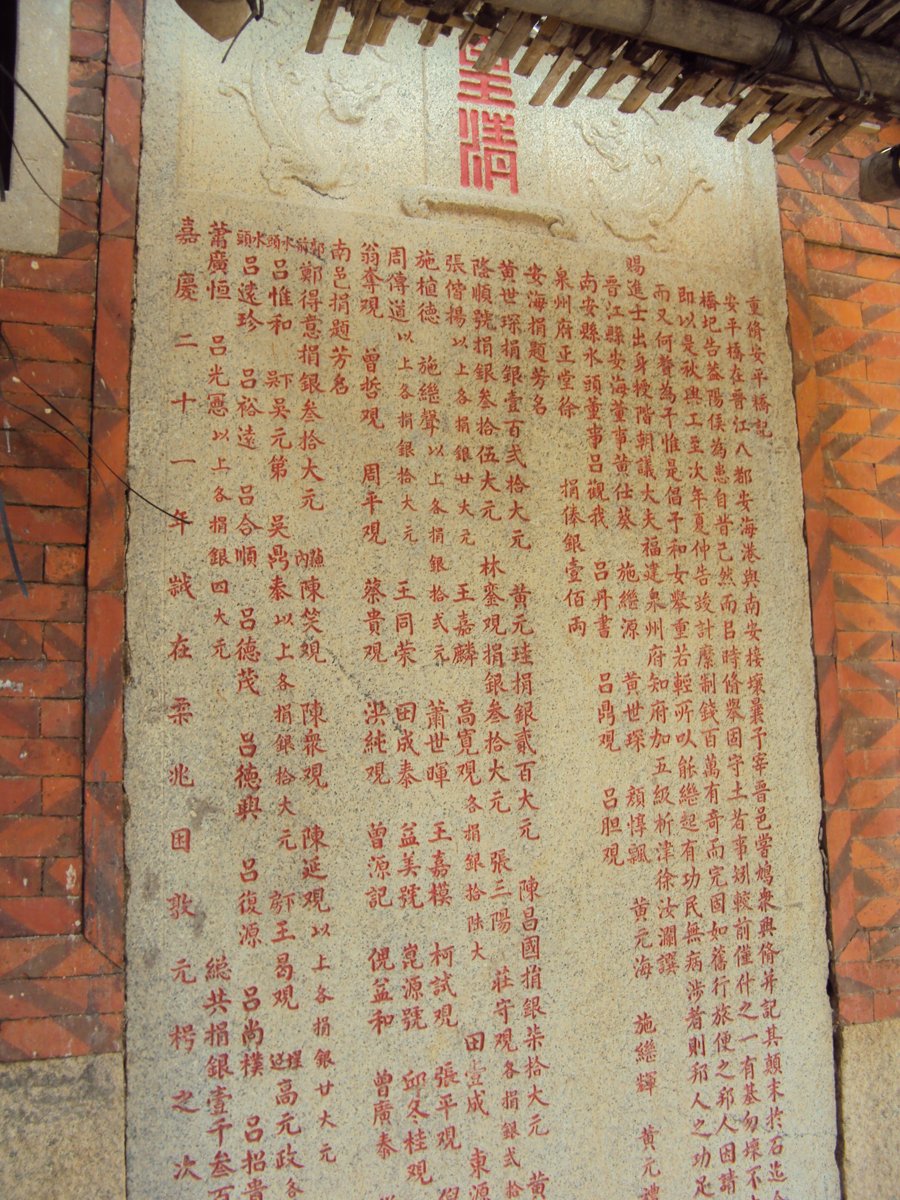 皇清
重脩安平橋記
安平橋在晋江八都安海港與南安接壤曩予宰晋邑嘗鳩衆興脩并記其顛末於石迄今
橋圯告葢陽侯為患自昔已然而吕時脩舉固守土者事矧較前僅什之一有基勿壞不
即以是秋興工至次年夏仲告竣計縻制錢百萬有奇而完固如舊行旅便之邦人因請
而又何贅為乎惟是倡予和女舉重若輕所以能繼起有功民無病涉者則邦人之功足
賜進士出身授階朝議大夫福建泉州府知府加五級析津徐汝瀾譔
晋江縣安海董事黃仕葵 施繼源 黃世琛 顏惇飄 黃元海 施繼輝 黃元禮
南安縣水頭董事吕觀我 吕丹書 吕鼎观 吕胆观
泉州府正堂徐 捐俸銀壹佰兩
安海捐題芳名
黃世琛捐銀壹百弍拾大元 黃元珪捐銀貳百大元 陳昌國捐銀柒拾大元 黃
隆順號捐銀叁拾伍大元 林銮观捐銀叁拾大元 張三陽 莊守观各捐銀弍拾
張偕揚以上各捐銀廿大元 王嘉麟 高寬观各捐銀拾陸大 田壹成 東源
施植德 施繼聲以上各捐銀拾弍元 蕭世暉 王嘉模 柯試观 張平观
周傳道以上各捐銀拾大元 王同荣 田成泰 益美號 崑源號 邱冬桂观
翁奪观 曾哲观 周平观 蔡貴观 洪純观 曾源記 倪益和 曾廣泰
南邑捐題芳名
郭前鄭得意捐銀叁拾大元 内陳笑观 陳衆观 陳延观以上各捐銀廿大元
水頭吕惟和 下吴吴元第 吴鼎泰以上各捐銀拾大元 王曷观 高元政各
水頭吕遠珍 吕裕遠 吕合順 吕德茂 吕德興 吕復源 吕尚樸 吕招貴
萧廣恒 吕光愿以上各捐銀四大元 総共捐銀壹千叁百
嘉慶二十一年歲在柔兆困敦元枵之次